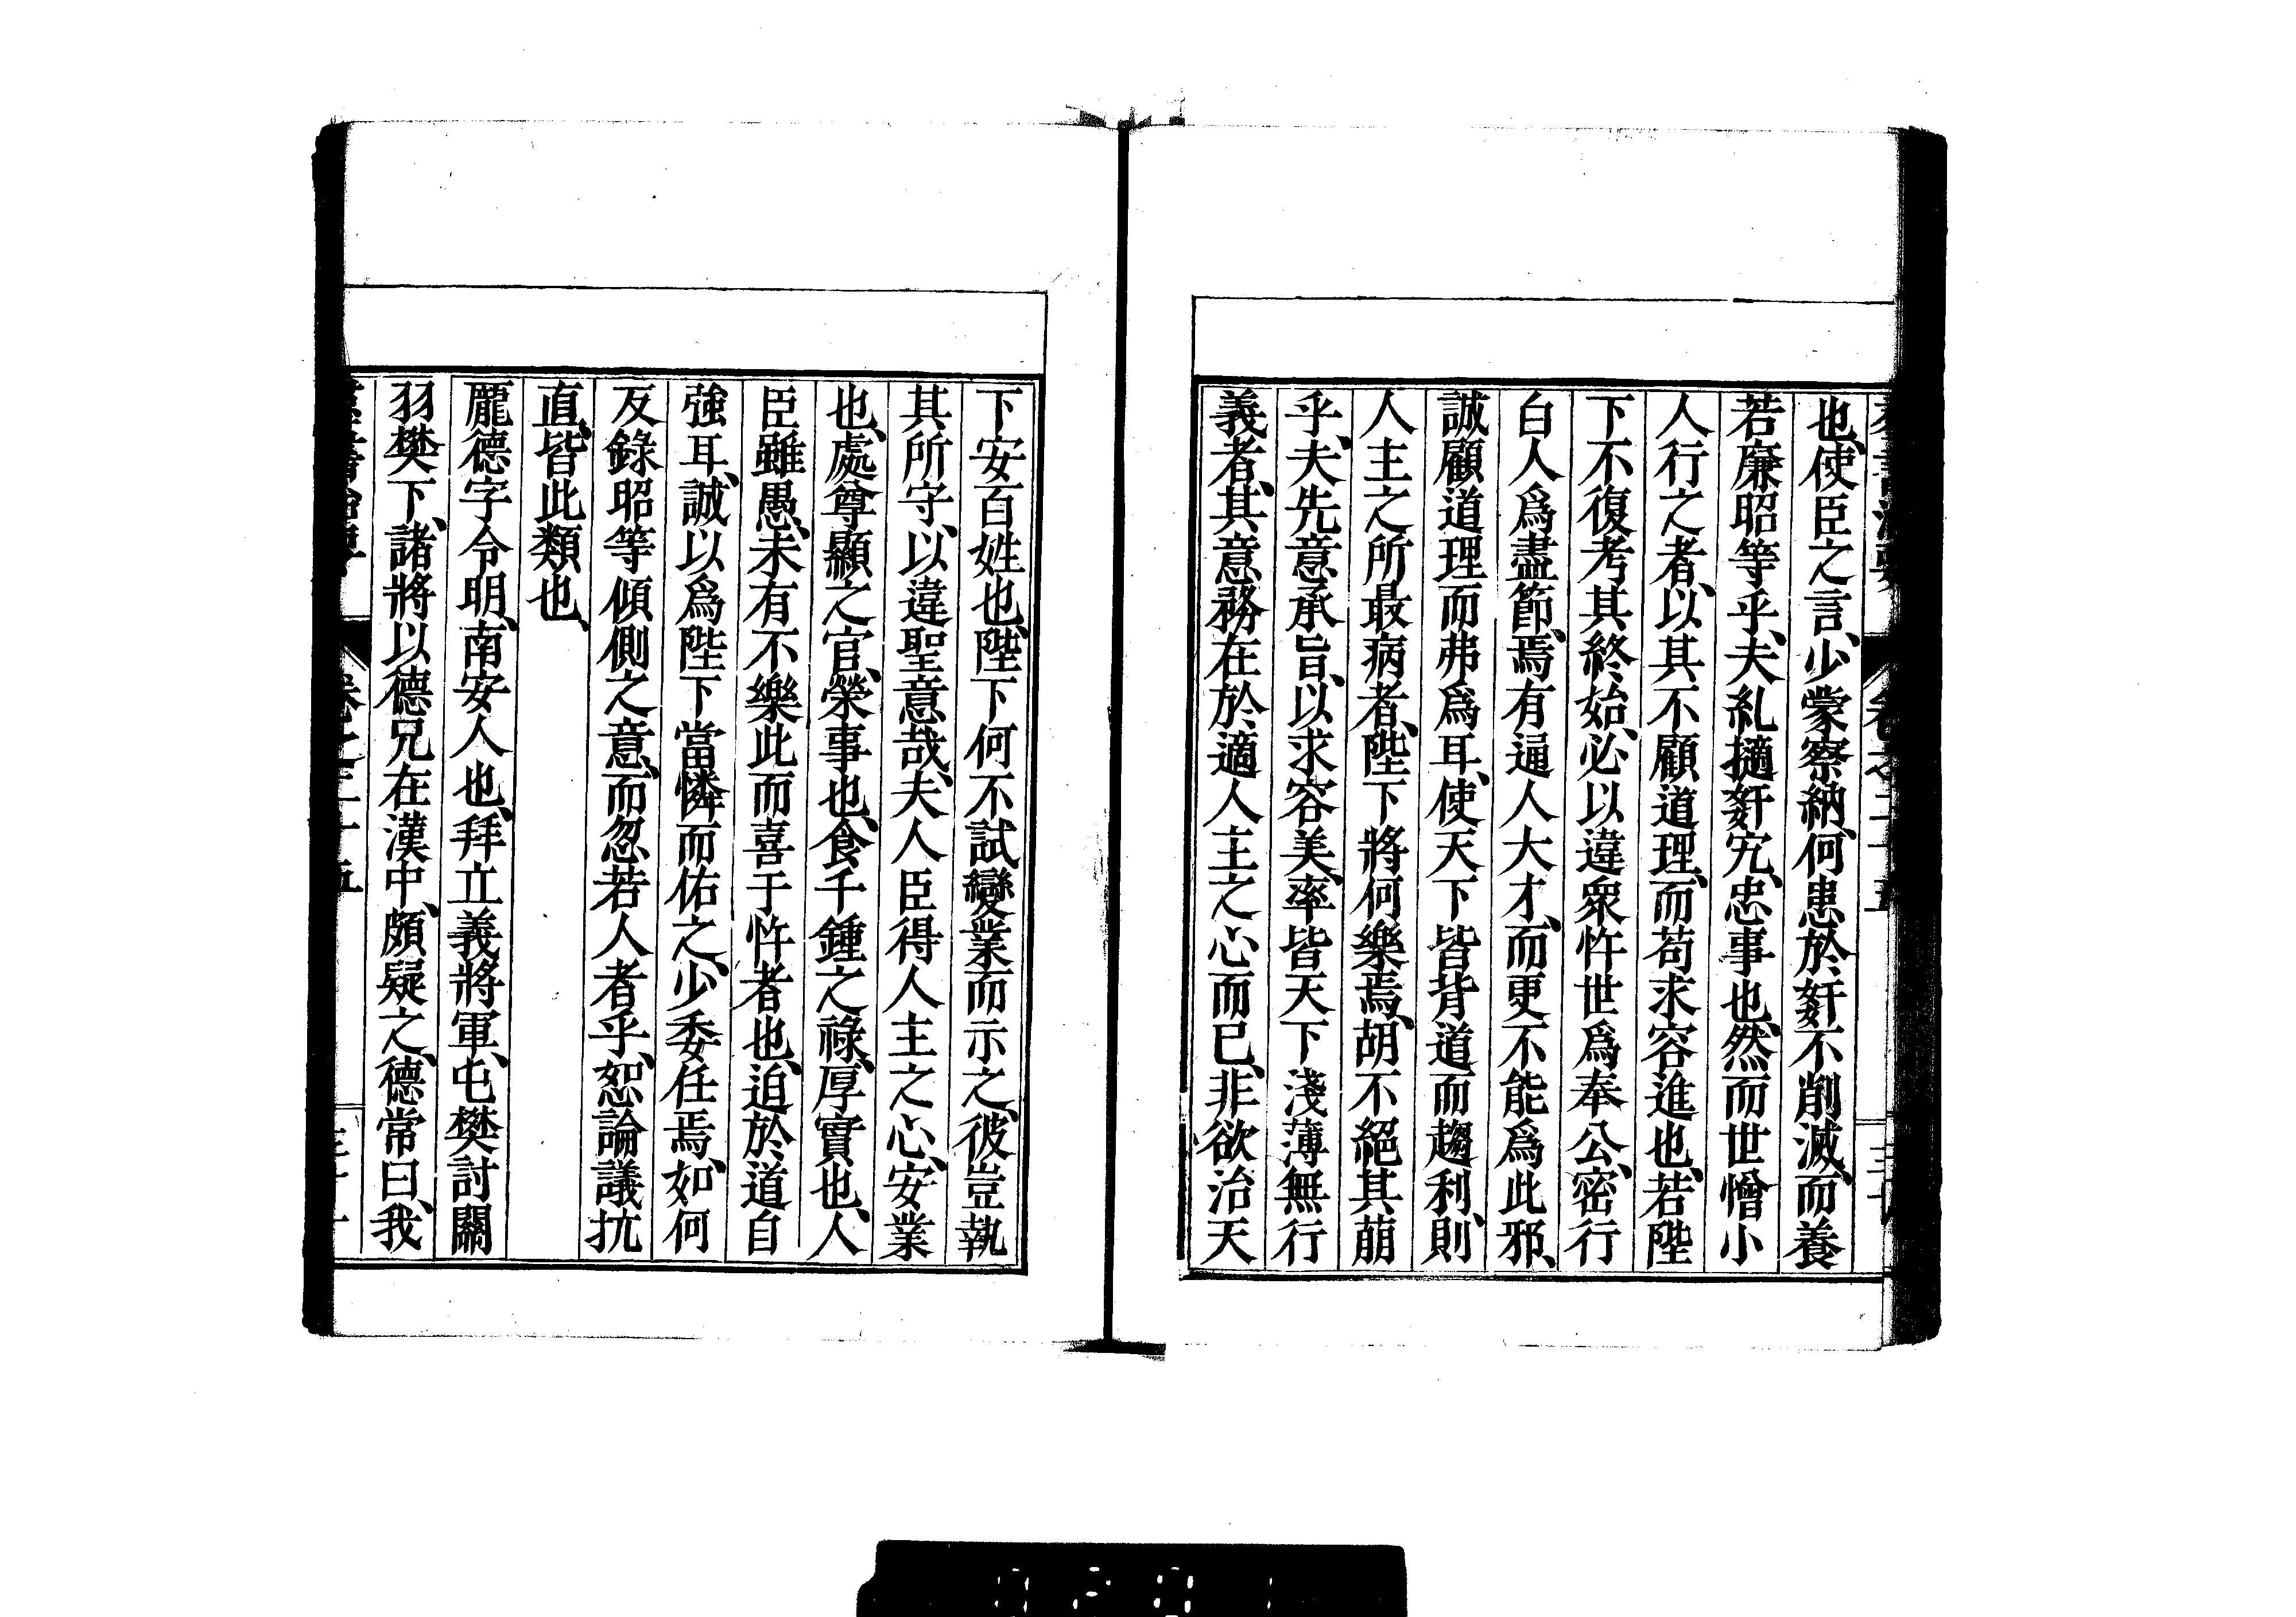 也、使臣之言、少蒙察納、何患於姧不削滅、而養
若廉昭等乎、夫糺擿姧宄、忠事也、然而世憎小
人行之者、以其不顧道理、而苟求容進也、若陛
下不復考其終始、必以違眾忤世爲奉公、密行
白人爲盡節、焉有通人大才、而更不能爲此邪、
誠顧道理而弗爲耳、使天下皆背道而趨利、則
人主之所最病者、陛下將何樂焉、胡不絕其萠
乎、夫先意承旨、以求容美、率皆天下淺薄無行
義者、其意務在於適人主之心而已、非欲治天
下安百姓也、陛下何不試變業而示之、彼豈執
其所守、以違聖意哉、夫人臣得人主之心、安業
也、處尊顯之官、榮事也、食千鍾之祿、厚實也、人
臣雖愚、未有不樂此而喜于忤者也、迫於道自
強耳、誠以爲陛下當憐而佑之、少委任焉、如何
反錄昭等傾側之意、而忽若人者乎、恕論議抗
直、皆此類也、
龐德字令明、南安人也、拜立義將軍、屯樊討關
羽樊下、諸將以德兄在漢中、頗疑之、德常曰、我